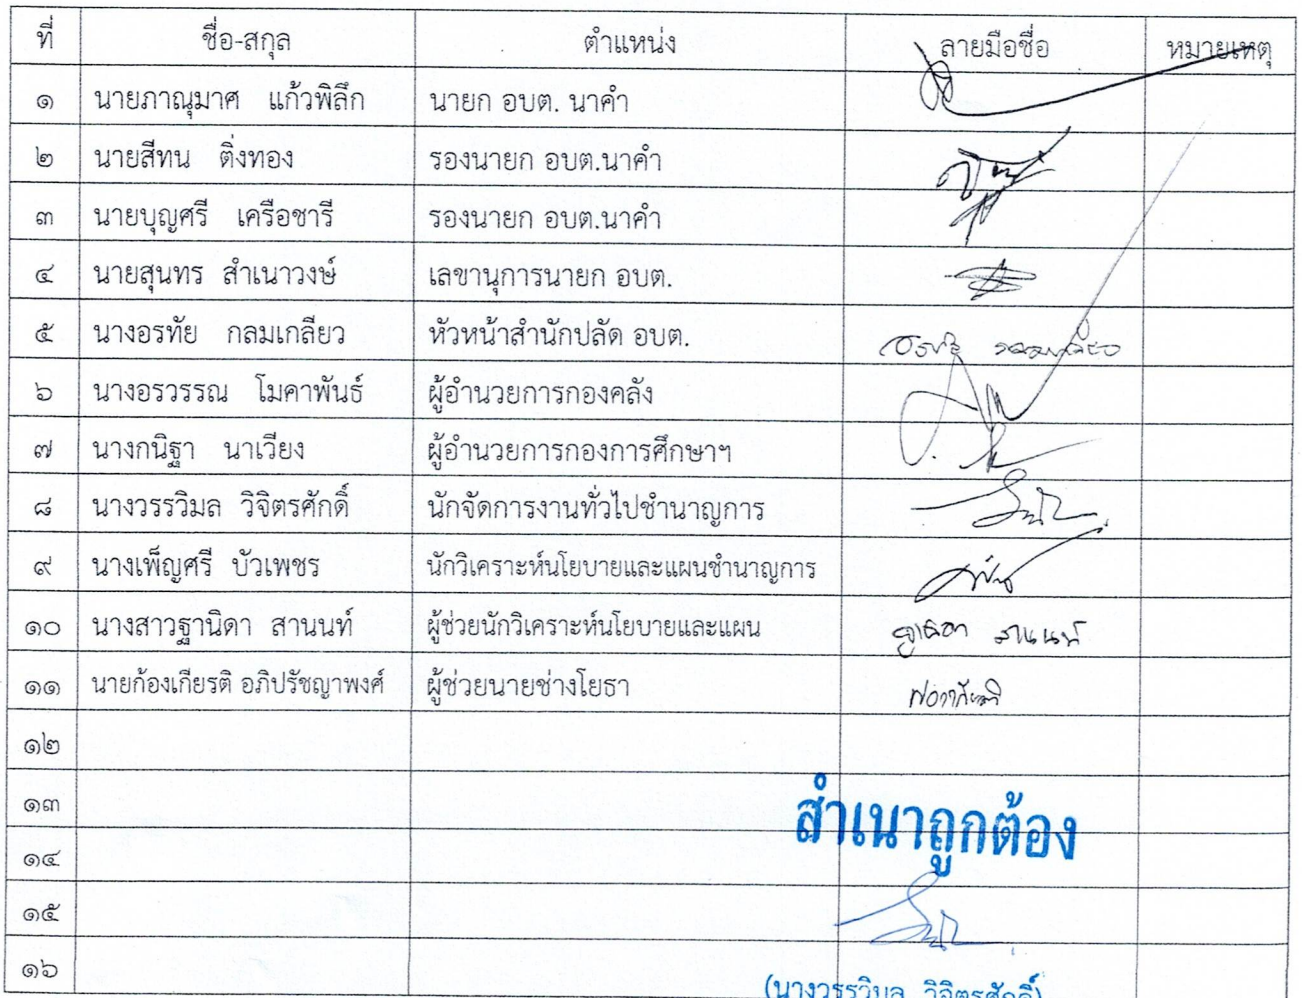 ที่ ชื่อ-สกุล ตำแหน่ง ลายมือชื่อ หมายเหตุ
๑ นายภาณุมาศ แก้วพิลึก นายก อบต. นาคำ
๒ นายสีทน ติ่งทอง รองนายก อบต.นาคำ
๓ นายบุญศรี เครือชารี รองนายก อบต.นาคำ
๔ นายสุนทร สำเนาวงษ์ เลขานุการนายก อบต.
๕ นางอรทัย กลมเกลียว หัวหน้าสำนักปลัด อบต.
๖ นางอรวรรณ โมคาพันธ์ ผู้อำนวยการกองคลัง
๗ นางกนิฐา นาเวียง ผู้อำนวยการกองการศึกษาฯ
๘ นางวรรวิมล วิจิตรศักดิ์ นักจัดการงานทั่วไปชำนาญการ
๙ นางเพ็ญศรี บัวเพชร นักวิเคราะห์นโยบายและแผนชำนาญการ
๑๐ นางสาวฐานิดา สานนท์ ผู้ช่วยนักวิเคราะห์นโยบายและแผน ฐานิดา สานนท์
๑๑ นายก้องเกียรติ อภิปรัชญาพงศ์ ผู้ช่วยนายช่างโยธา
๑๒
๑๓
สำเนาถูกต้อง
๑๔
๑๕
๑๖
(นางวรรวิมล วิจิตรศักดิ์)